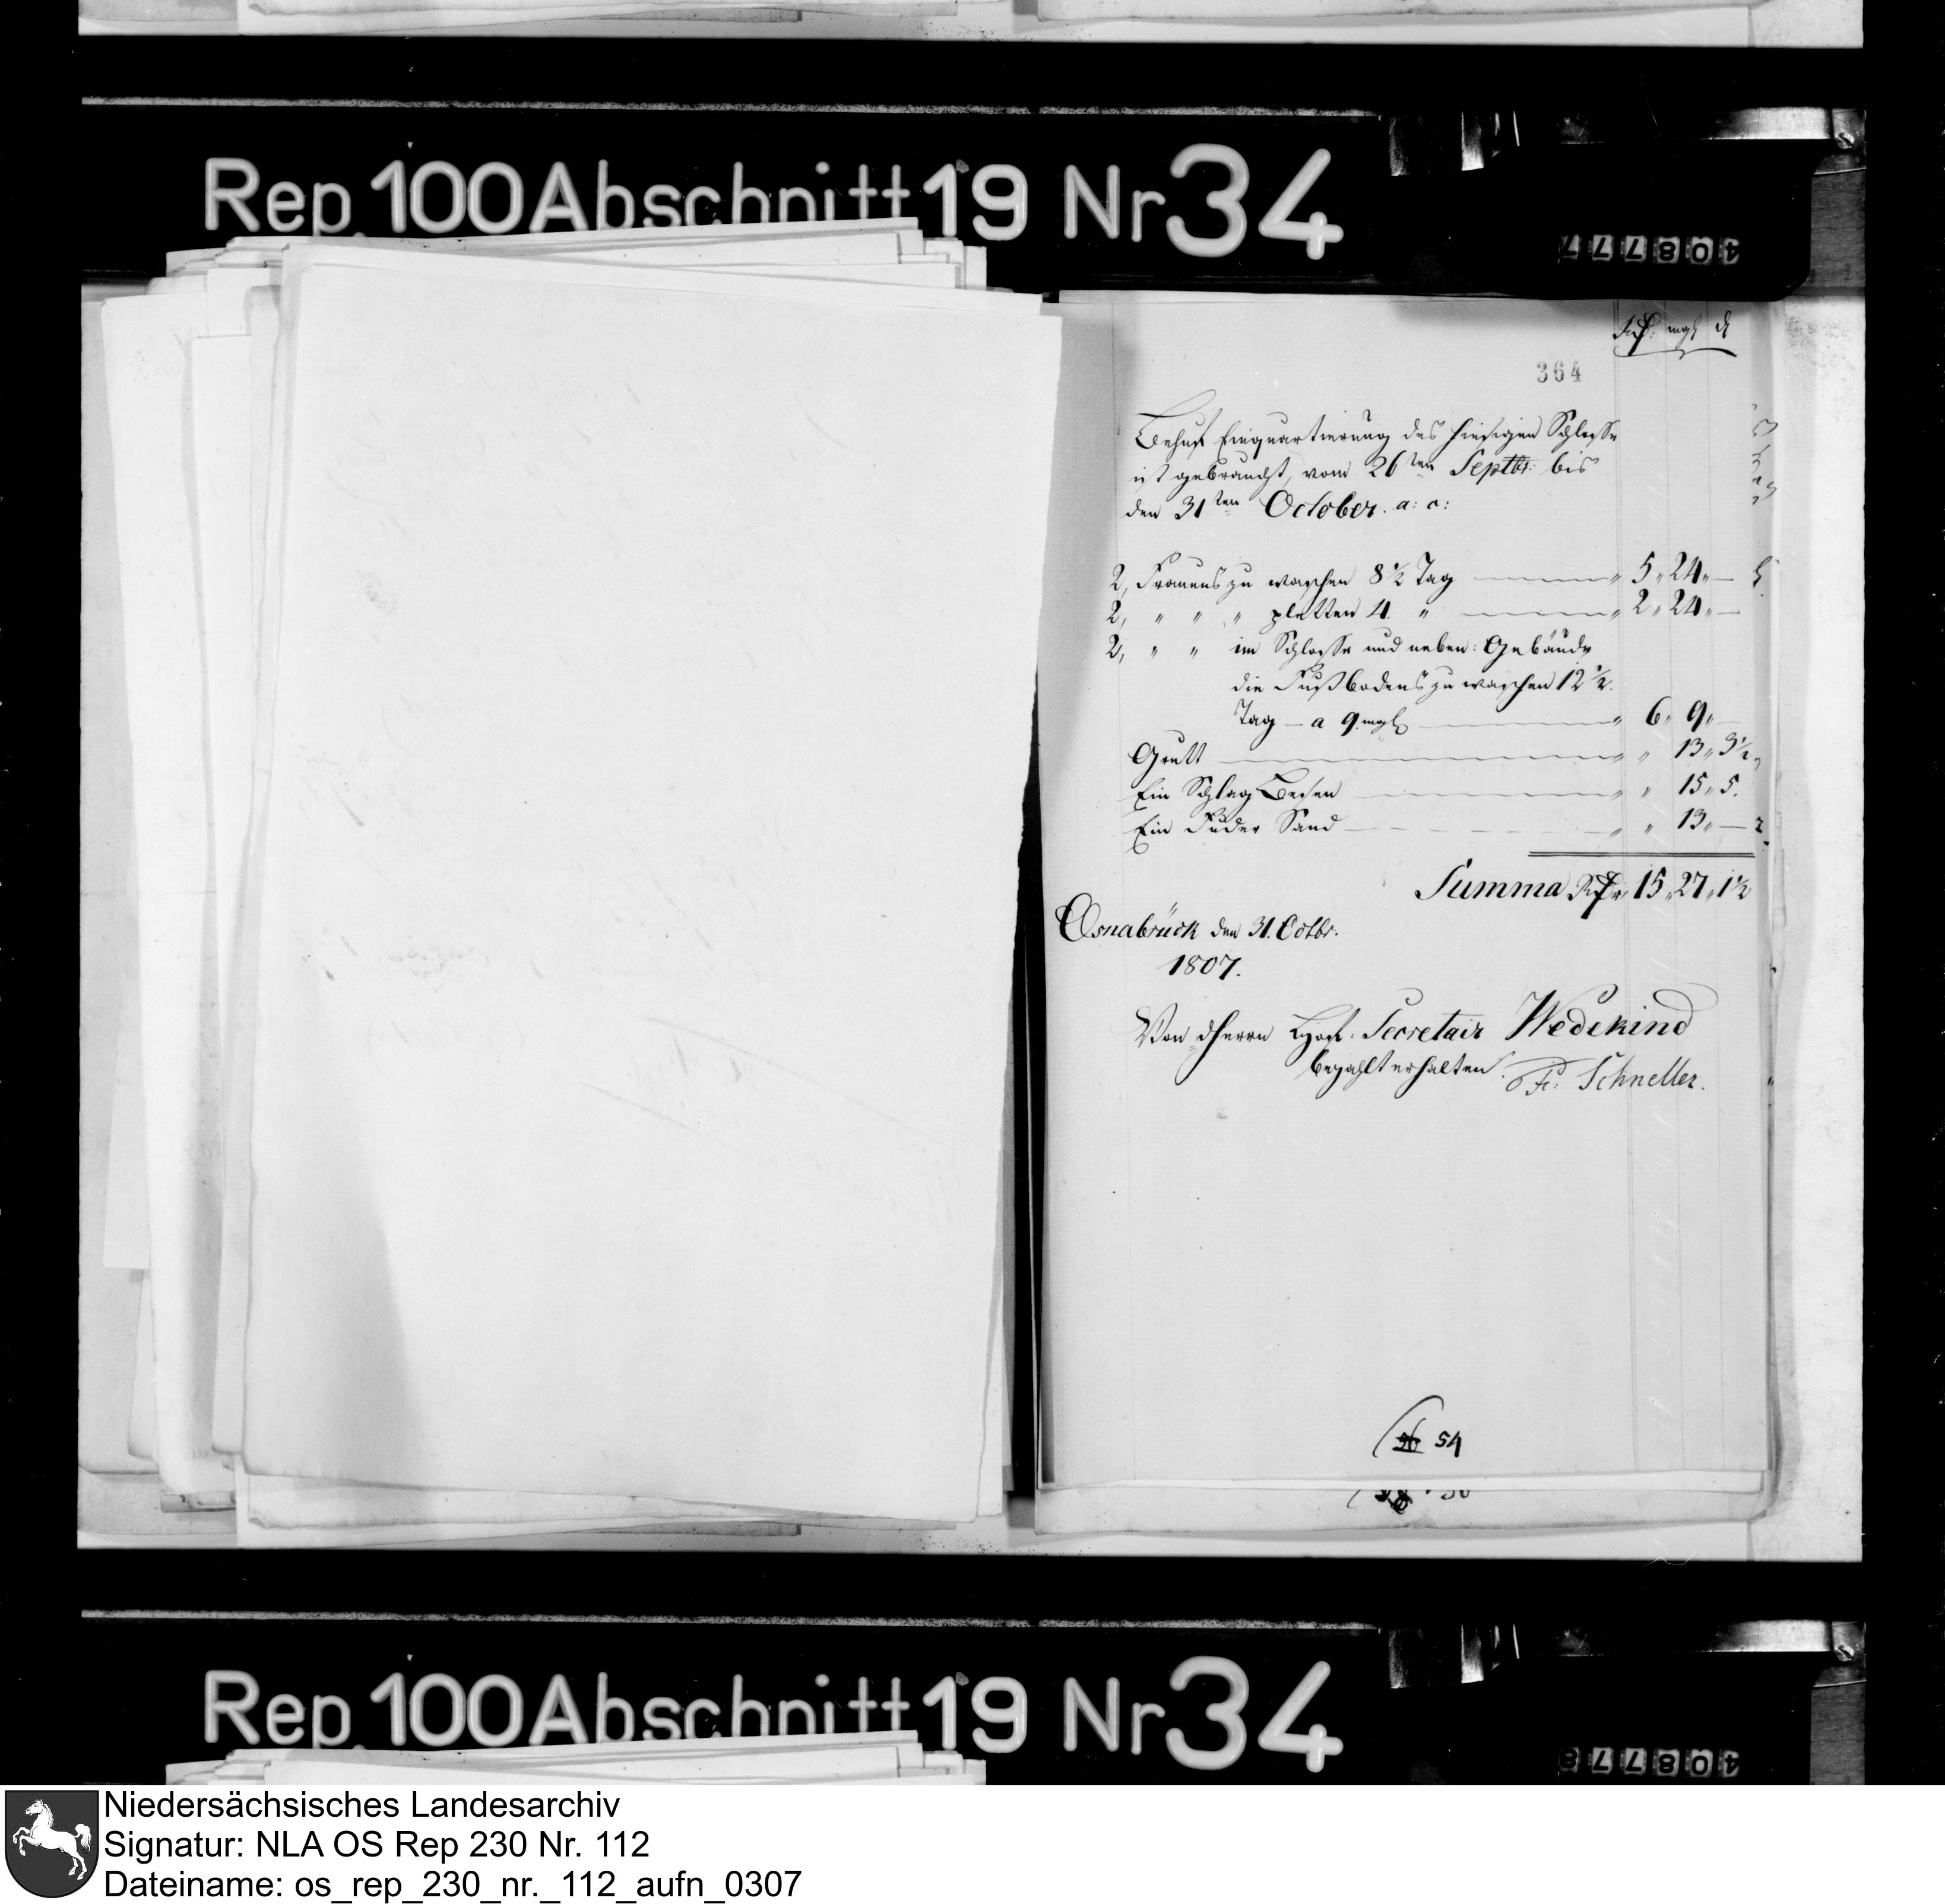 Rep. 100 Abschnitt 19 Nr 34
408777
Rth. mgl d
364
Behuf Einquartierung des hiesigen Schlosse
ist gebraucht, vom 26ten Septbr: bis
den 31ten October. a: c:
2, Frauens zu waschen 8 1/2 Tag — " 5 " 24 " —
2, " " " pletten 4 " — " 2 " 24 " —
2, " " im Schlosse und neben: Gebäude
die Fußbodens zu waschen 12 1/2.
Tag — a 9 mgl — " 6 " 9 " —
Grutt — " " 13 " 3 1/2
Ein Schlag Besen — " " 15 " 5.
Ein Fuder Sand — " " 13 " —
Summa Rthr 15 " 27 " 1 1/2
Osnabrück den 31. Octbr.
1807.
Von dHerrn Hof: Secretair Wedekind
bezahlt erhalten. Fr: Schneller.
54
Rep. 100 Abschnitt 19 Nr 34
408778
Niedersächsisches Landesarchiv
Signatur: NLA OS Rep 230 Nr. 112
Dateiname: os_rep_230_nr._112_aufn_0307